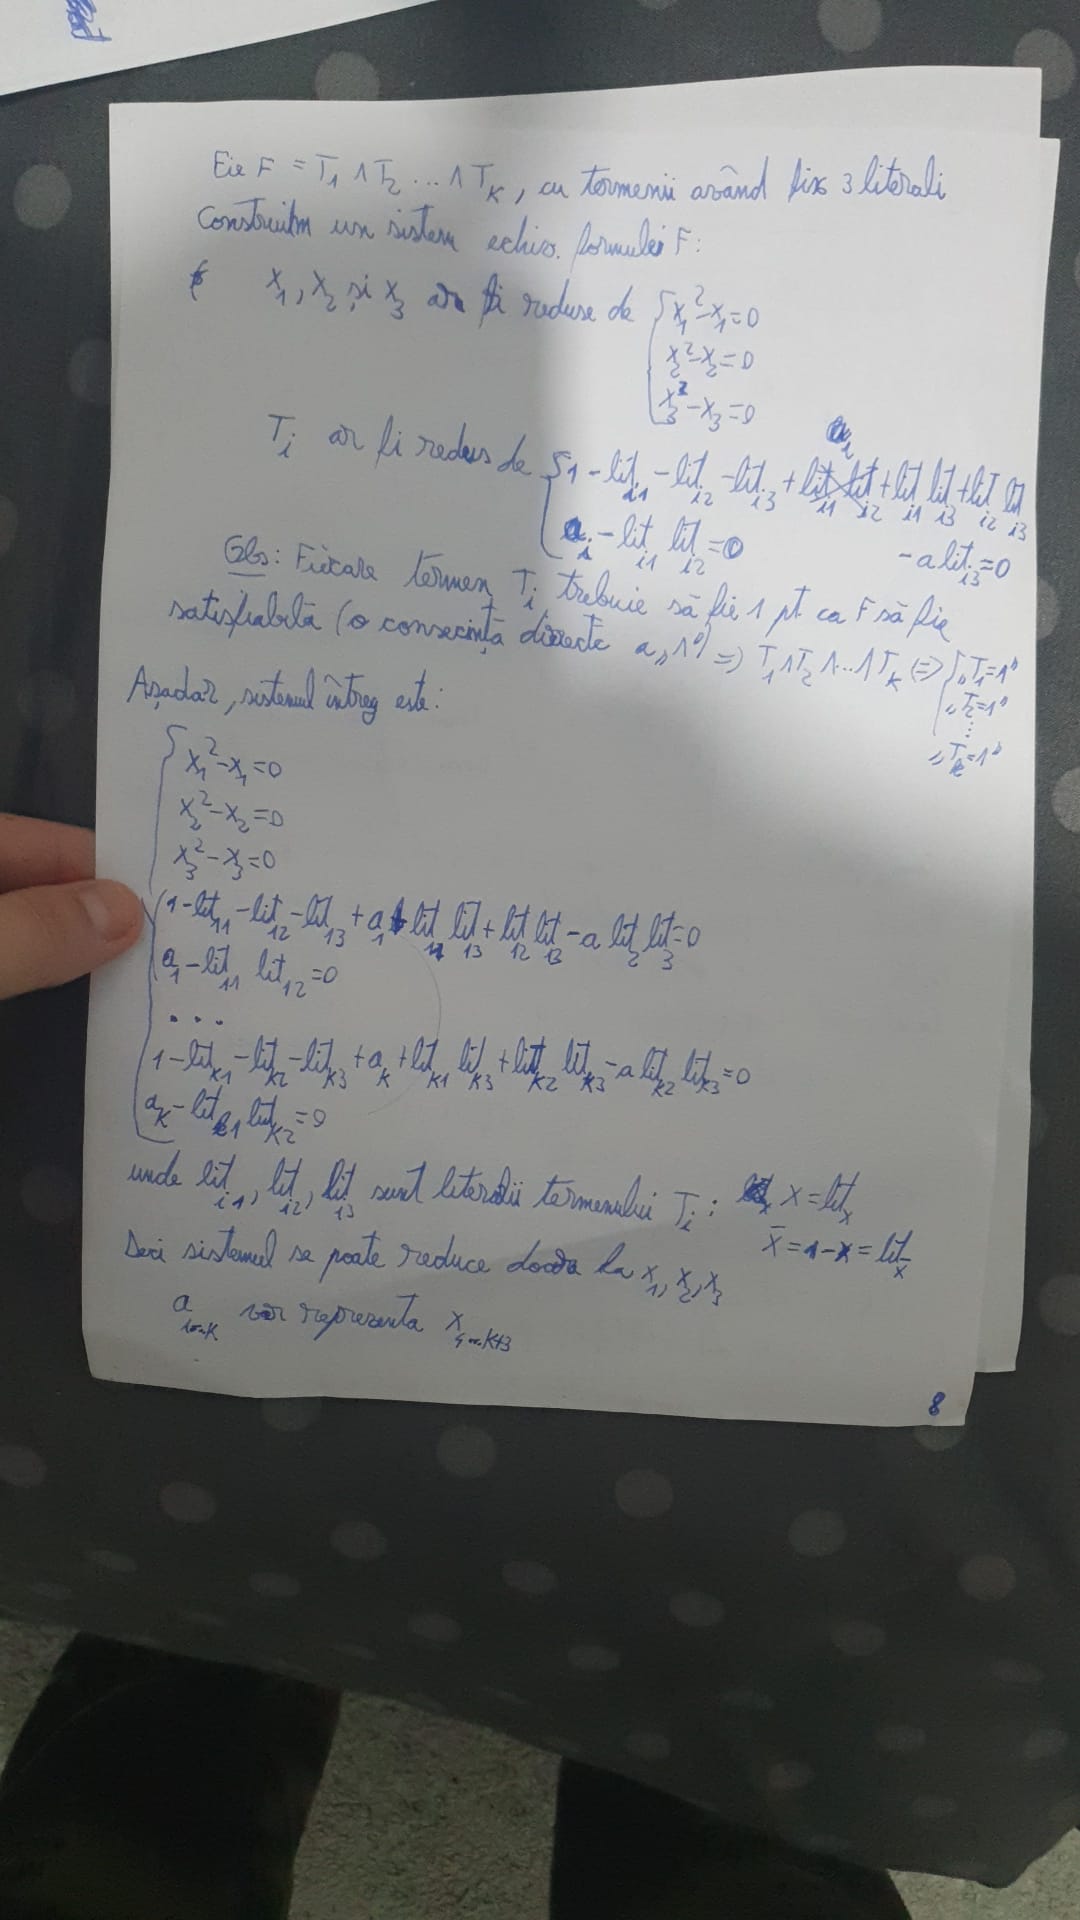 Fie F = T₁ ∧ T₂ ... ∧ T_K, cu termenii având fix 3 literali
Construim un sistem echiv. formulei F:
x₁, x₂ și x₃ ar fi reduse de { x₁² - x₁ = 0
x₂² - x₂ = 0
x₃² - x₃ = 0
T_i ar fi redus de { 1 - lit_i1 - lit_i2 - lit_i3 + a_i + lit_i1 lit_i3 + lit_i2 lit_i3
- a lit_i3 = 0
a_i - lit_i1 lit_i2 = 0
Obs: Fiecare termen T_i trebuie să fie 1 pt ca F să fie
satisfiabilă (o consecință directă a „1”) => T₁ ∧ T₂ ∧ ... ∧ T_K (=> { „T₁ = 1”
„T₂ = 1”
⋮
„T_k = 1”
Așadar, sistemul întreg este:
{ x₁² - x₁ = 0
x₂² - x₂ = 0
x₃² - x₃ = 0
1 - lit_11 - lit_12 - lit_13 + a₁ + lit_11 lit_13 + lit_12 lit_13 - a lit_2 lit_3 = 0
a₁ - lit_11 lit_12 = 0
...
1 - lit_K1 - lit_K2 - lit_K3 + a_K + lit_K1 lit_K3 + lit_K2 lit_K3 - a lit_K2 lit_K3 = 0
a_K - lit_K1 lit_K2 = 0
unde lit_i1, lit_i2, lit_i3 sunt literalii termenului T_i : x = lit_x
x̄ = 1 - x = lit_x̄
Deci sistemul se poate reduce doar la x₁, x₂, x₃
a_1...K vor reprezenta x_4...K+3
8